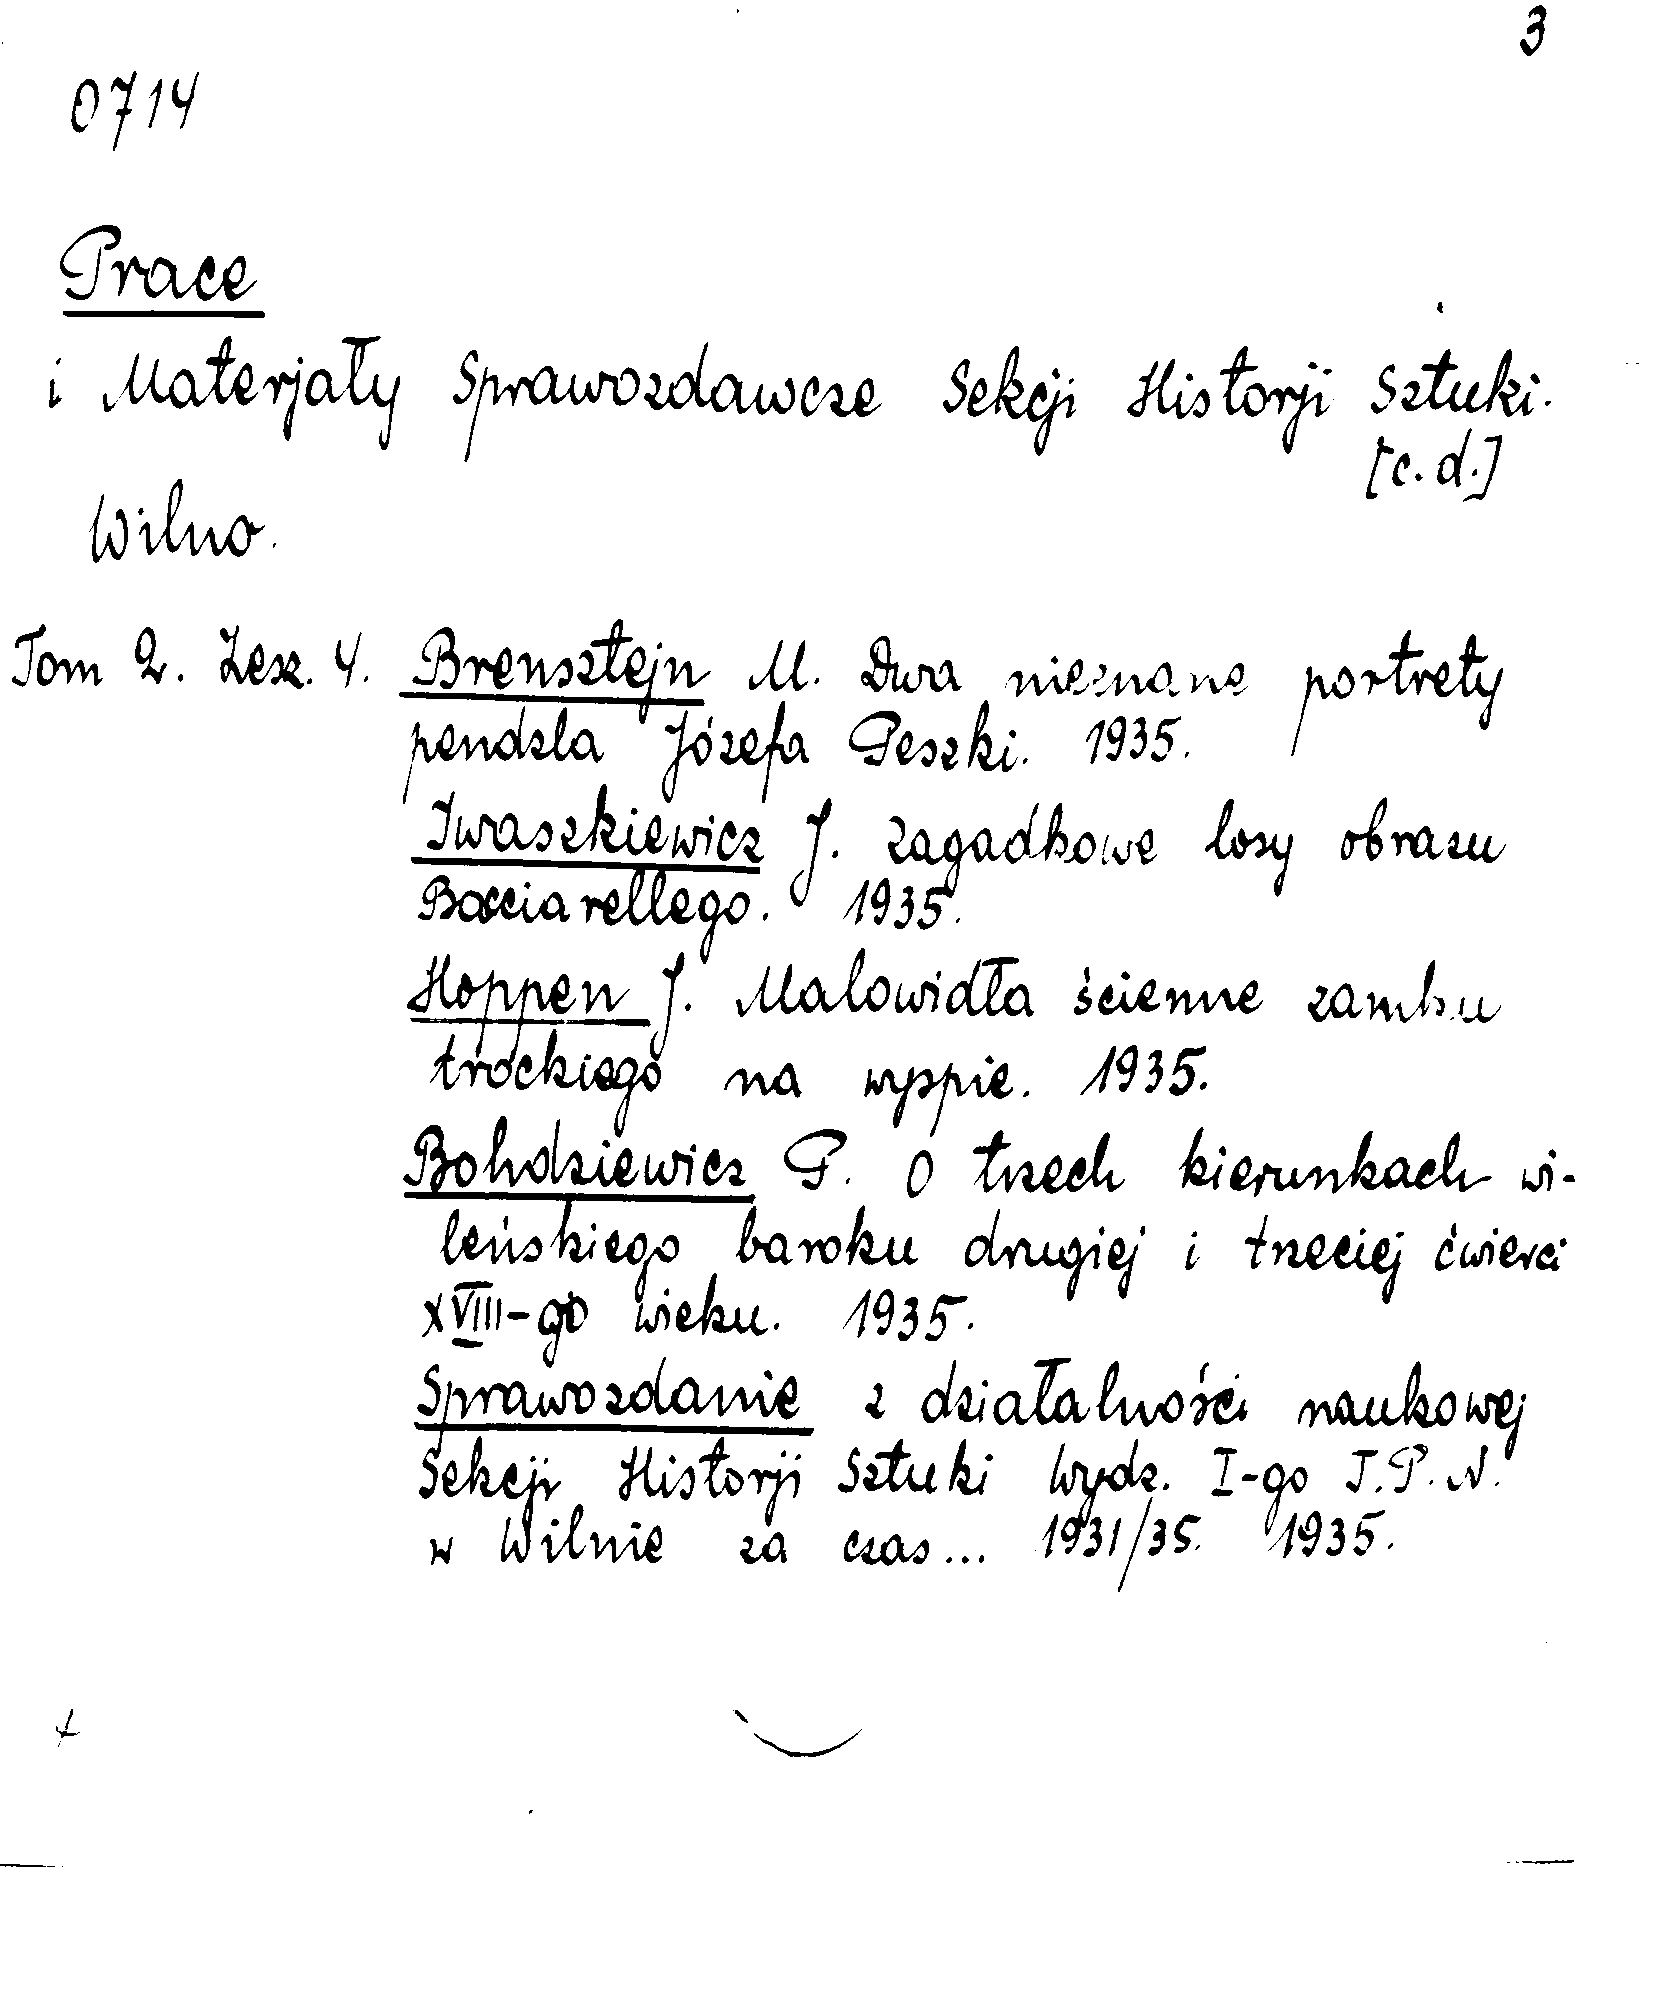 3
0714
Prace
i Materjały Sprawozdawcze Sekcji Historji Sztuki.
[c.d.]
Wilno.
Tom 2. Zesz. 4. Brensztejn M. Dwa nieznane portrety
pendzla Józefa Peszki. 1935.
Iwaszkiewicz J. Zagadkowe losy obrazu
Bacciarellego. 1935.
Hoppen J. Malowidła ścienne zamku
trockiego na wyspie. 1935.
Bohdziewicz P. O trzech kierunkach wi-
leńskiego baroku drugiej i trzeciej ćwierci
XVIII-go wieku. 1935.
Sprawozdanie z działalności naukowej
Sekcji Historji Sztuki Wydz. I-go T.P.N.
w Wilnie za czas... 1931/35. 1935.